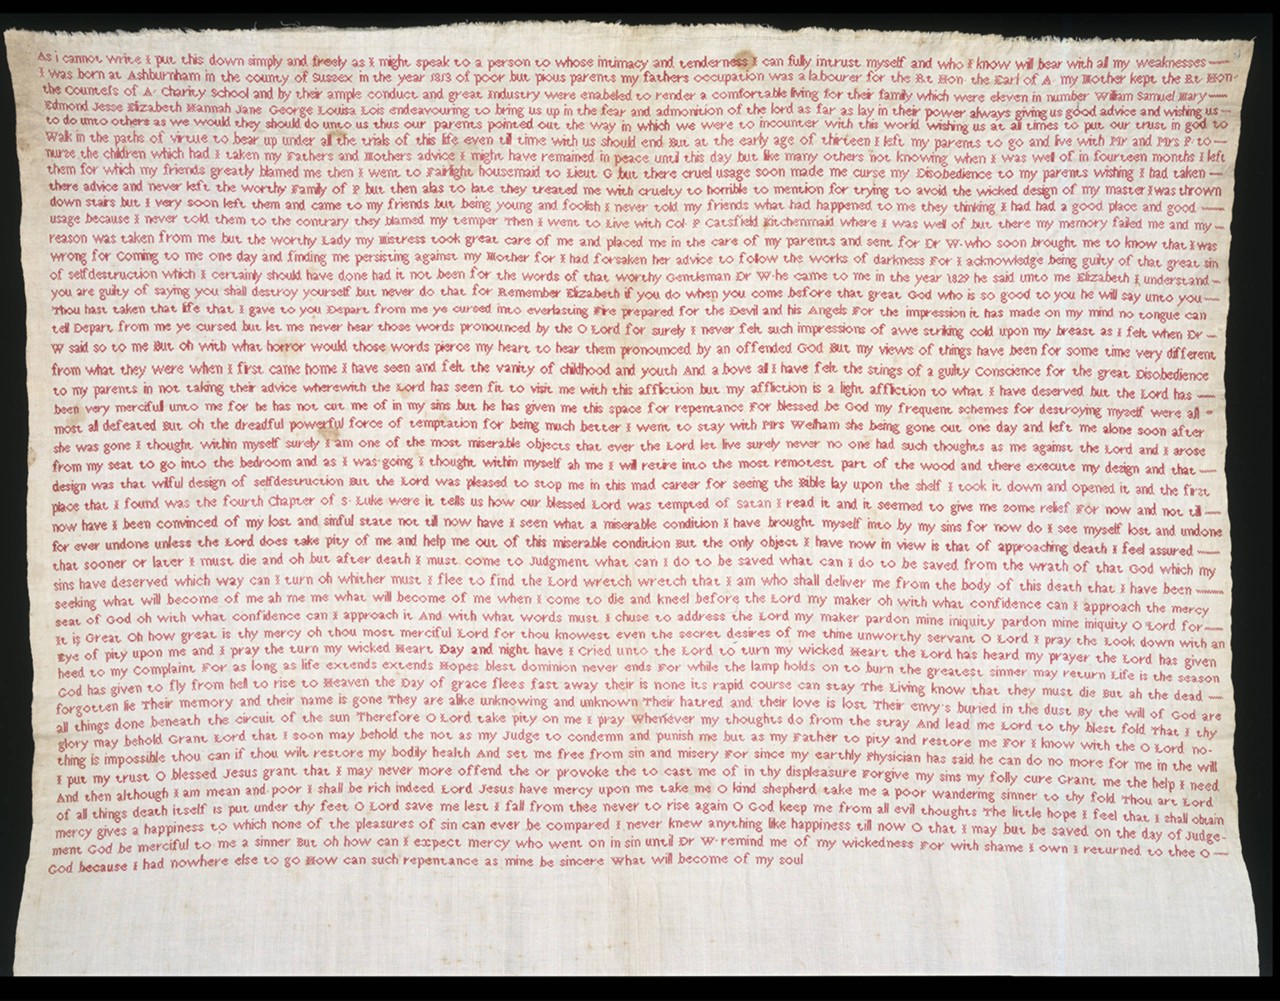 As i cannot write I put this down simply and freely as I might speak to a person to whose intimacy and tenderness I can fully intrust myself and who I know will bear with all my weaknesses
I was born at Ashburnham in the county of Sussex in the year 1813 of poor but pious parents my fathers occupation was a labourer for the Rt Hon the Earl of A my Mother kept the Rt Hon
the countess of A Charity School and by their ample conduct and great industry were enabeled to render a comfortable living for their family which were eleven in number William Samuel Mary
Edmond Jesse Elizabeth Hannah Jane George Louisa Lois endeavouring to bring us up in the fear and admonition of the lord as far as lay in their power always giving us good advice and wishing us
to do unto others as we would they should do unto us thus our parents pointed out the way in which we were to incounter with this world wishing us at all times to put our trust in god to
Walk in the paths of virtue to bear up under all the trials of this life even till time with us should end But at the early age of thirteen I left my parents to go and live with Mr and Mrs P to
nurse the children which had I taken my Fathers and Mothers advice I might have remained in peace until this day but like many others not knowing when I was well of in fourteen months I left
them for which my friends greatly blamed me then I went to Fairlight housemaid to Lieut G but there cruel usage soon made me curse my Disobedience to my parents wishing I had taken
there advice and never left the worthy Family of P but then alas to late they treated me with cruelty to horrible to mention for trying to avoid the wicked design of my master I was thrown
down stairs but I very soon left them and came to my friends but being young and foolish I never told my friends what had happened to me they thinking I had had a good place and good
usage because I never told them to the contrary they blamed my temper Then I went to Live with Col P Catsfield Kitchenmaid where I was well of but there my memory failed me and my
reason was taken from me but the worthy Lady my Mistress took great care of me and placed me in the care of my parents and sent for Dr W who soon brought me to know that I was
wrong for Coming to me one day and finding me persisting against my Mother for I had forsaken her advice to follow the works of darkness For I acknowledge being guilty of that great sin
of selfdestruction which I certainly should have done had it not been for the words of that worthy Gentleman Dr W he came to me in the year 1829 he said unto me Elizabeth I understand
you are guilty of saying you shall destroy yourself but never do that for Remember Elizabeth if you do when you come before that great God who is so good to you he will say unto you
Thou hast taken that life that I gave to you Depart from me ye cursed into everlasting Fire prepared for the Devil and his Angels For the impression it has made on my mind no tongue can
tell Depart from me ye cursed but let me never hear those words pronounced by the O Lord for surely I never felt such impressions of awe striking cold upon my breast as I felt when Dr
W said so to me But oh with what horror would those words pierce my heart to hear them pronounced by an offended God But my views of things have been for some time very different
from what they were when I first came home I have seen and felt the vanity of childhood and youth And a bove all I have felt the stings of a guilty Conscience for the great Disobedience
to my parents in not taking their advice wherewith the Lord has seen fit to visit me with this affliction but my affliction is a light affliction to what I have deserved but the Lord has
been very merciful unto me for he has not cut me of in my sins but he has given me this space for repentance For blessed be God my frequent schemes for destroying myself were all
most all defeated But oh the dreadful powerful force of temptation for being much better I went to stay with Mrs Welham she being gone out one day and left me alone soon after
she was gone I thought within myself surely I am one of the most miserable objects that ever the Lord let live surely never no one had such thoughts as me against the Lord and I arose
from my seat to go into the bedroom and as I was going I thought within myself ah me I will retire into the most remotest part of the wood and there execute my design and that
design was that wilful design of selfdestruction But the Lord was pleased to stop me in this mad career for seeing the Bible lay upon the shelf I took it down and opened it and the first
place that I found was the fourth Chapter of S Luke were it tells us how our blessed Lord was tempted of Satan I read it and it seemed to give me some relief For now and not till
now have I been convinced of my lost and sinful state not till now have I seen what a miserable condition I have brought myself into by my sins for now do I see myself lost and undone
for ever undone unless the Lord does take pity of me and help me out of this miserable condition But the only object I have now in view is that of approaching death I feel assured
that sooner or later I must die and oh but after death I must come to Judgment what can I do to be saved what can I do to be saved from the wrath of that God which my
sins have deserved which way can I turn oh whither must I flee to find the Lord wretch wretch that I am who shall deliver me from the body of this death that I have been
seeking what will become of me ah me me what will become of me when I come to die and kneel before the Lord my maker oh with what confidence can I approach the mercy
seat of God oh with what confidence can I approach it And with what words must I chuse to address the Lord my maker pardon mine iniquity pardon mine iniquity O Lord for
It is Great Oh how great is thy mercy oh thou most merciful Lord for thou knowest even the secret desires of me thine unworthy servant O Lord I pray the Look down with an
Eye of pity upon me and I pray the turn my wicked Heart Day and night have I Cried unto the Lord to turn my wicked Heart the Lord has heard my prayer the Lord has given
heed to my Complaint For as long as life extends extends Hopes blest dominion never ends For while the lamp holds on to burn the greatest sinner may return Life is the season
God has given to fly from hell to rise to Heaven the Day of grace flees fast away their is none its rapid course can stay The Living know that they must die But ah the dead
forgotten lie Their memory and their name is gone They are alike unknowing and unknown Their hatred and their love is lost Their envy's buried in the dust By the will of God are
all things done beneath the circuit of the sun Therefore O Lord take pity on me I pray Whenever my thoughts do from the stray And lead me Lord to thy blest fold That I thy
glory may behold Grant Lord that I soon may behold the not as my Judge to condemn and punish me but as my Father to pity and restore me For I know with the O Lord no-
thing is impossible thou can if thou wilt restore my bodily health And set me free from sin and misery For since my earthly Physician has said he can do no more for me in the will
I put my trust O blessed Jesus grant that I may never more offend the or provoke the to cast me of in thy displeasure Forgive my sins my folly cure Grant me the help I need
And then although I am mean and poor I shall be rich indeed Lord Jesus have mercy upon me take me O kind shepherd take me a poor wandering sinner to thy fold Thou art Lord
of all things death itself is put under thy feet O Lord save me lest I fall from thee never to rise again O God keep me from all evil thoughts The little hope I feel that I shall obtain
mercy gives a happiness to which none of the pleasures of sin can ever be compared I never knew anything like happiness till now O that I may but be saved on the day of Judge-
ment God be merciful to me a sinner But oh how can I expect mercy who went on in sin until Dr W remind me of my wickedness For with shame I own I returned to thee O
God because I had nowhere else to go How can such repentance as mine be sincere What will become of my soul